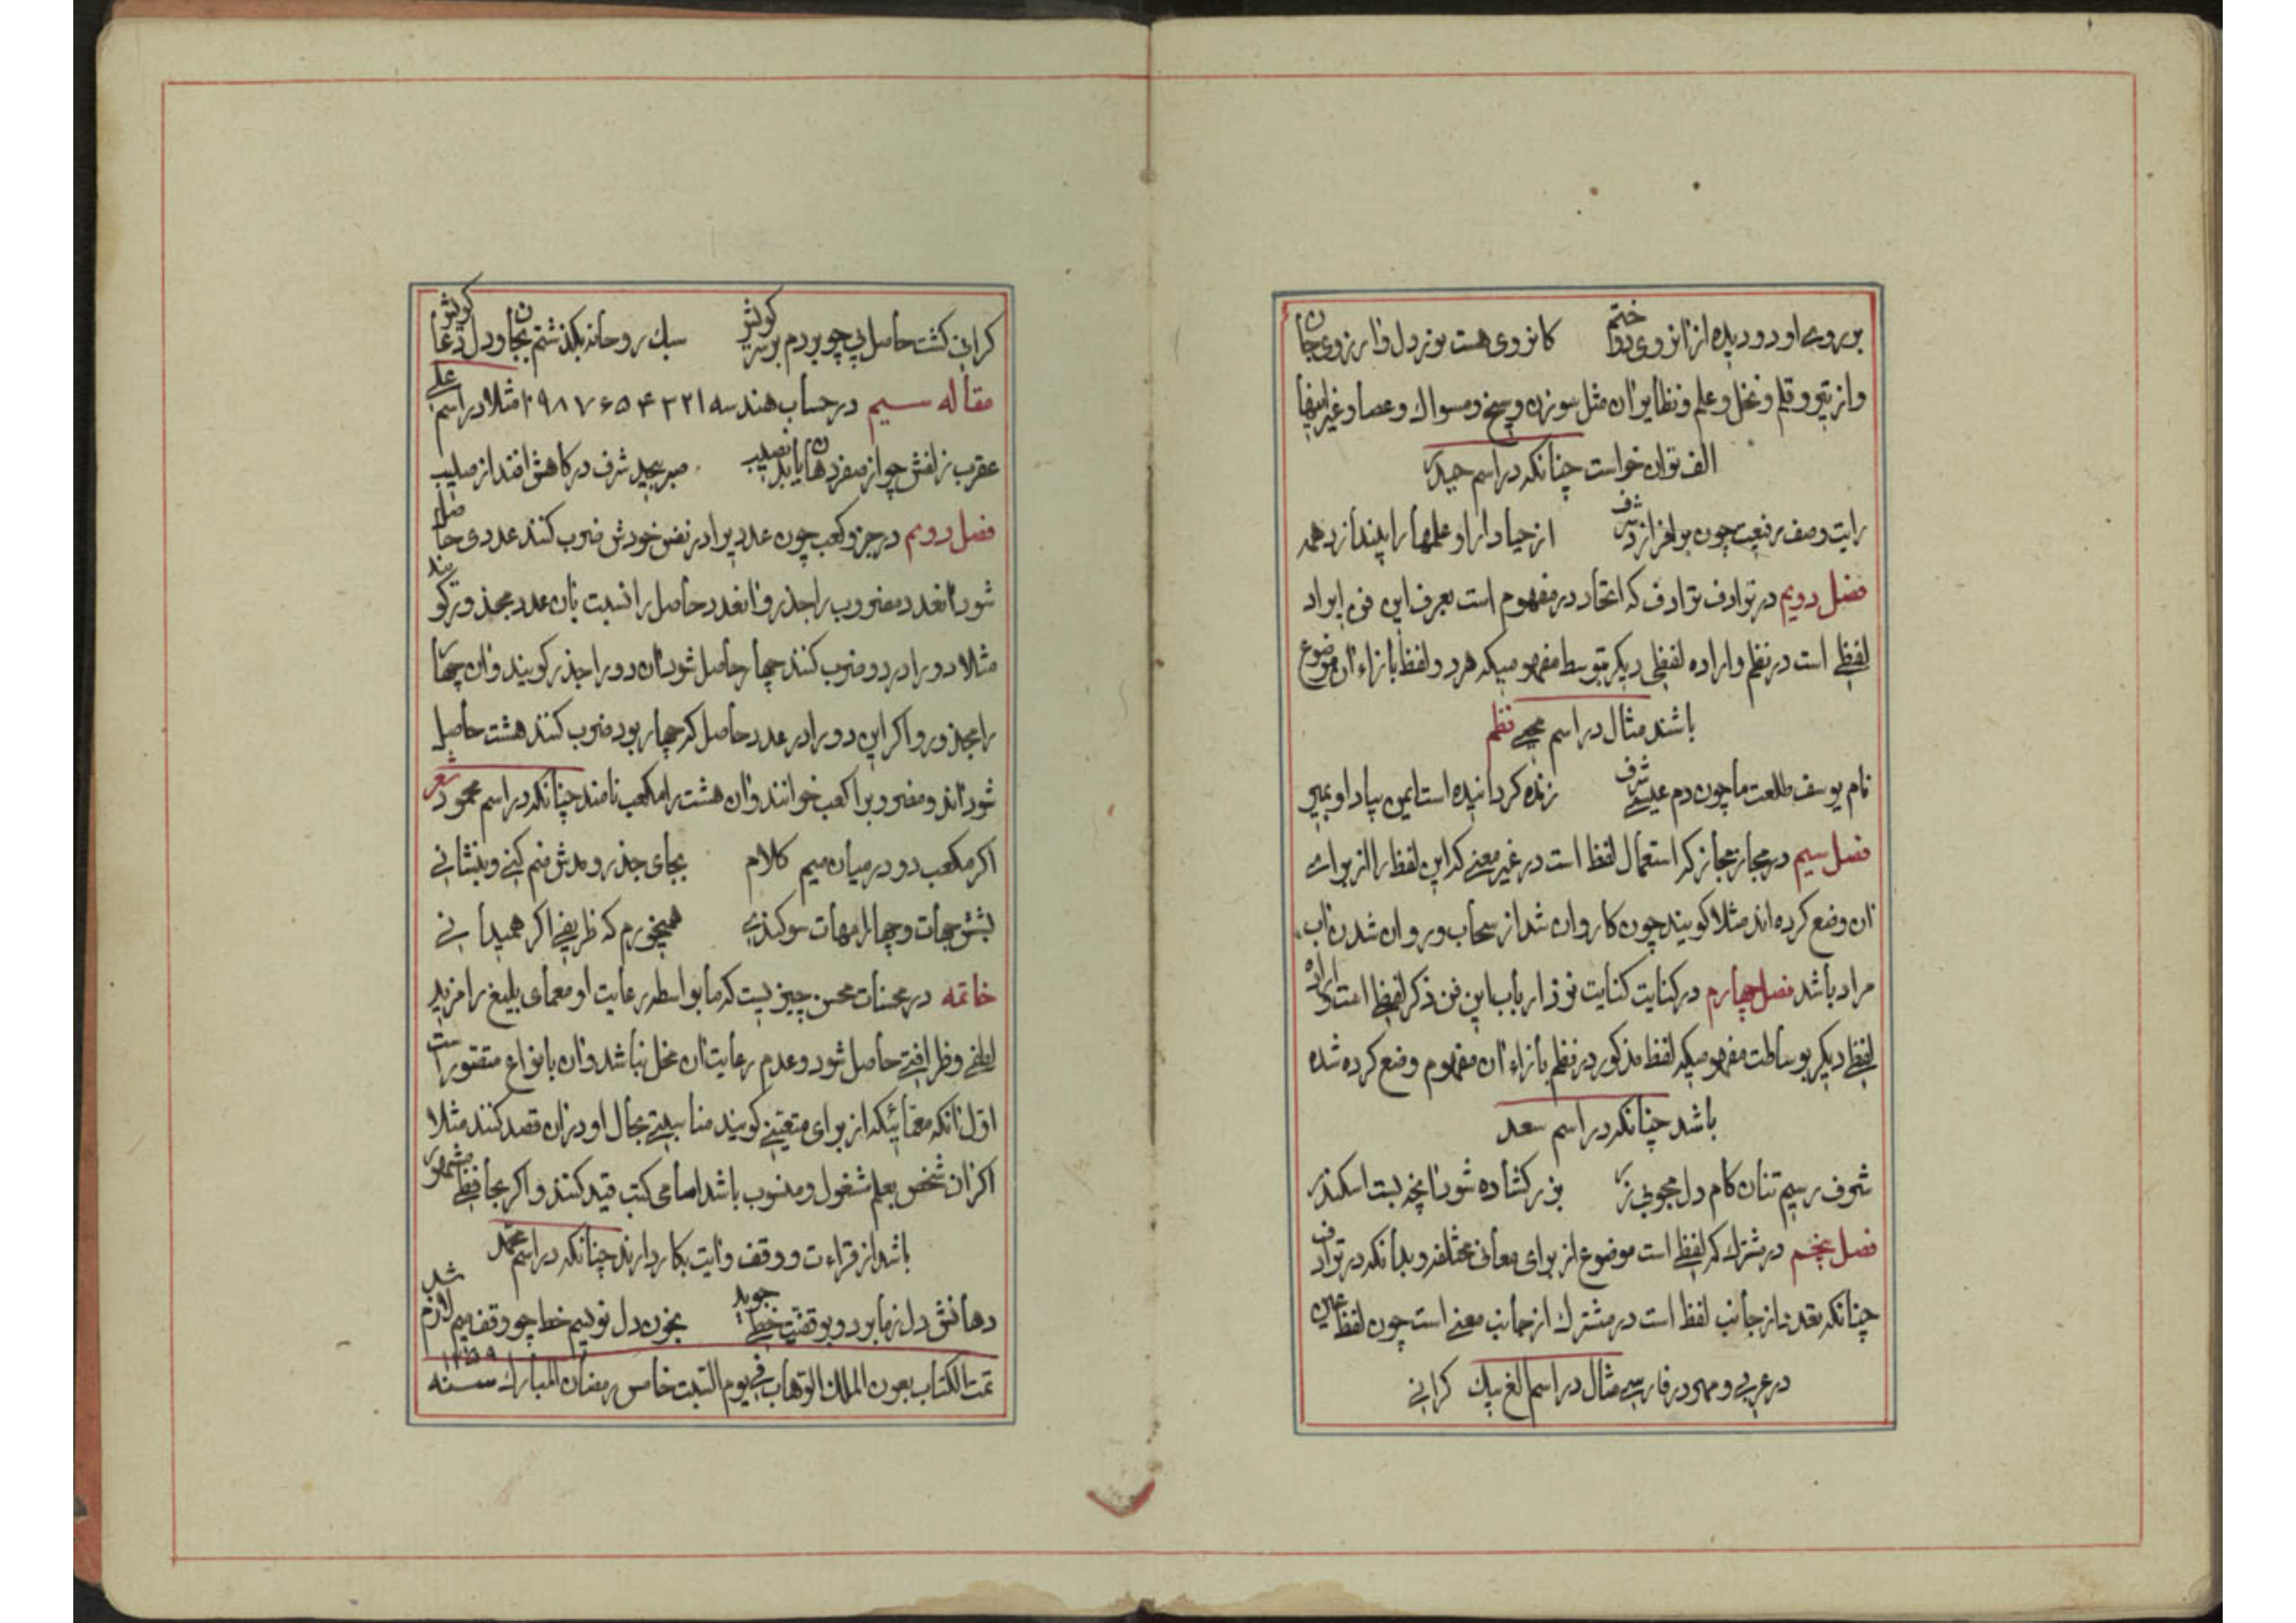 بر روی او دو دیده از آنروی دوختم کانروی هست نور دل وارزوی جان
واز تیر و قلم و نخل و علم و نظایر ان مثل سوزن و سیخ و مسواک و عصا و غیر اینها
الف توان خواست چنانکه در اسم حیدر
رایت وصف رفیعت چون برافرازد شرف از حیا دارا و علمها را بیندازد همه
فصل دویم در ترادف ترادف که اتحاد در مفهوم است بعرف این فن ایراد
لفظی است در نظم و اراده لفظی دیگر بتوسط مفهومیکه هر دو لفظ بازاء ان موضوع
باشند مثال در اسم نظم
نام یوسف طلعت ما چون دم عیسی شرف زنده کردانیده است ایمن بیاد او بمیر
فصل سیم در مجاز مجاز که استعمال لفظ است در غیر معنی که این لفظ را از برای
ان وضع کرده اند مثلا کویند چون کاروان شد از سحاب و روان شدن اب
مراد باشد فصل چهارم در کنایت کنایت نزد ارباب این فن ذکر لفظی است و اراده
لفظی دیگر بوساطت مفهومیکه لفظ مذکور در نظم بازاء ان مفهوم وضع کرده شده
باشد چنانکه در اسم سعد
شرف رسیم تنان کام دل مجوبی زر بزر کشاده شود انچه بست اسکندر
فصل پنجم در مشترک که لفظی است موضوع از برای معانی مختلفه و بدانکه در ترادف
چنانکه تعدد از جانب لفظ است در مشترک از جانب معنی است چون لفظ عین
در عربی و مهر در فارسی مثال در اسم الغ بیک کرانی
کرانی کشت حاصل پی چو بردم بر سر کویش سبک روحانه بکذشتم بجان و دل دعا کویش
مقاله سیم در حساب هندسه ۱ ۲ ۳ ۴ ۵ ۶ ۷ ۸ ۹ ۰ مثلا در اسم علی
عقرب زلفش چو از صفر دهان یابد نصیب صبر بیحد شرف در کاهش افتد از صلیب
فصل دویم در جزر و کعب چون عددیرا در نفس خودش ضرب کنند عددی حاصل
شود انعدد مضروب را جذر و انعدد حاصل را نسبت بان عدد مجذور کویند
مثلا دو را در دو ضرب کنند چهار حاصل شود ان دو را جذر کویند و ان چهار
را مجذور و اکر این دو را در عدد حاصل که چهار بود ضرب کنند هشت حاصل
شود اندو مضروبرا کعب خوانند و ان هشت را مکعب نامند چنانکه در اسم محمود شعر
اکر مکعب دو در میان میم کلام بجای جذر و مدش ضم کنی و بنشانی
بشش جهات و چهار امهات سوکندی همیخورم که ظریفی اکر همیدانی
خاتمه در محسنات محسن چیزیست که ما بواسطه رعایت او معمای بلیغ را مزید
لطفی و ظرافتی حاصل شود و عدم رعایت ان مخل نباشد و ان بانواع متصورست
اول انکه معمائیکه از برای متعینی کویند مناسبتی بحال او در ان قصد کنند مثلا
اکر ان شخص بعلم مشغول و منسوب باشد اسامی کتب قید کنند و اکر بحافظی مشهور
باشد از قراءت و وقف و ایت بکار دارند چنانکه در اسم محمد
دهانش دل ز ما برد و بوقفیت خطی جوید بخون دل نویسیم خط چو وقف میم لازم شد
تمت الکتاب بعون الملک الوهاب فی یوم السبت خامس رمضان المبارک سنه ۱۲۵۹